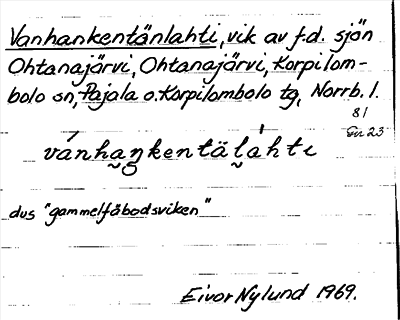 Vanhankentänlahti, vik av f.d. sjön
Ohtanajärvi, Ohtanajärvi, Korpilom-
bolo sn, Pajala o. Korpilombolo tg, Norrb. l.
81
23
vánhaŋkentälahti
dus "gammelfäbodsviken"
Eivor Nylund 1969.